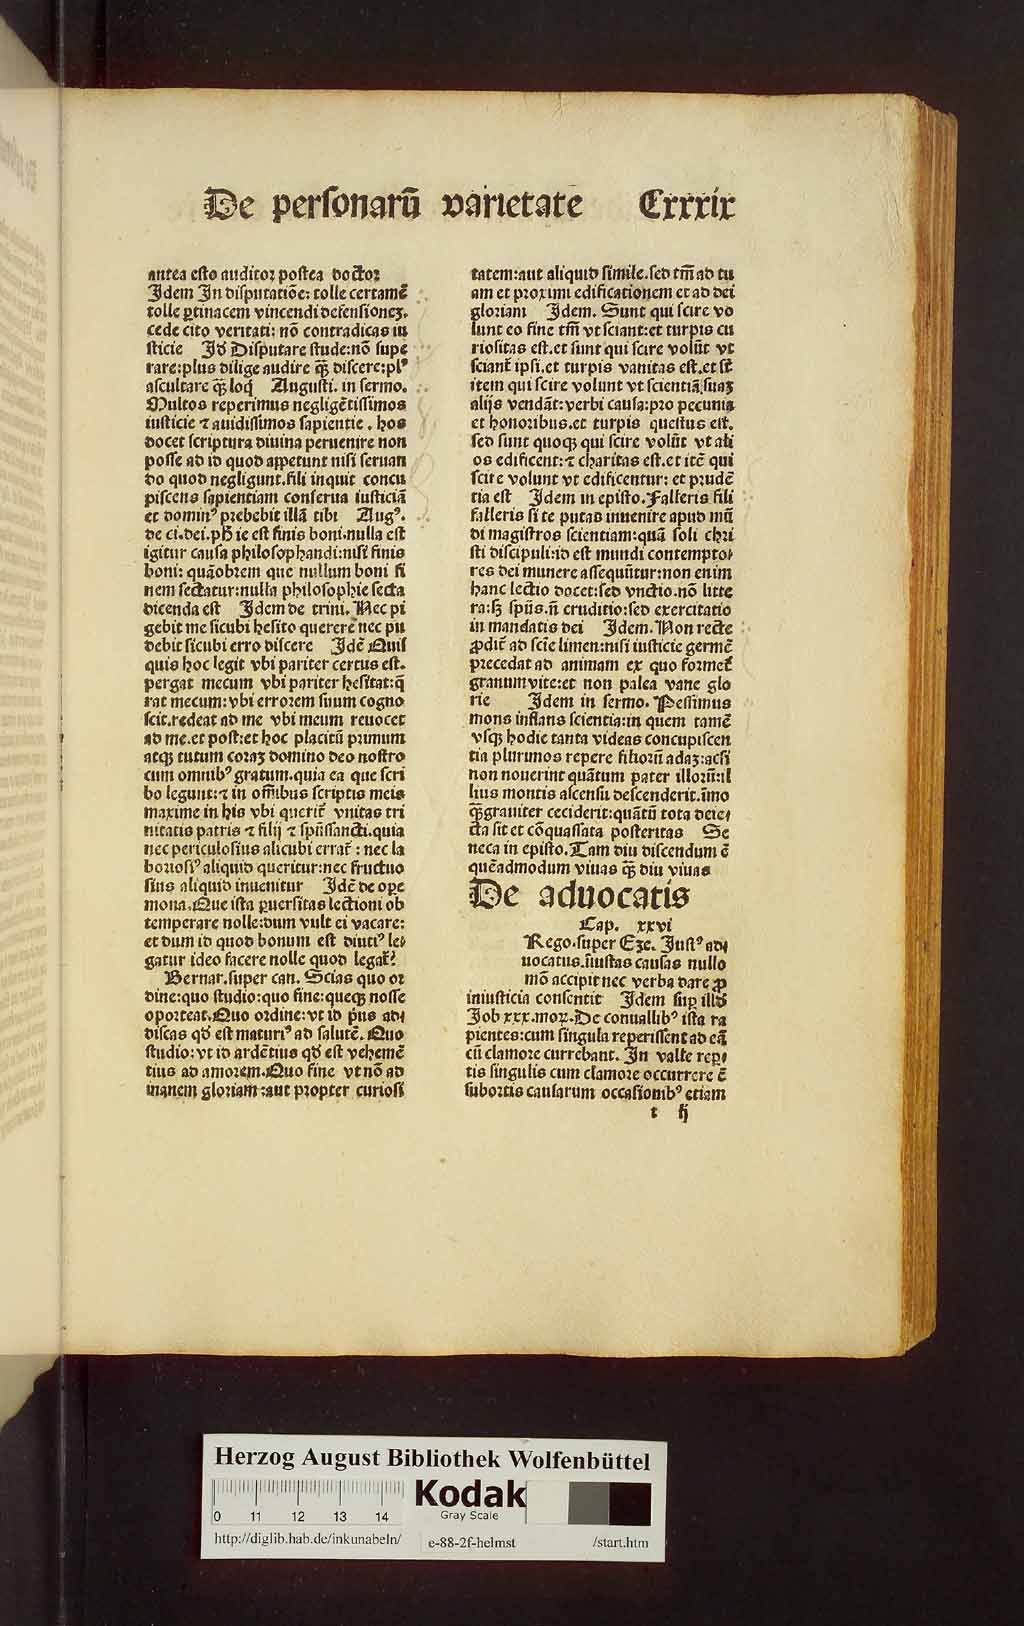 De personarū varietate Cxxxix
antea esto auditor postea doctor
Idem In disputatiōe: tolle certamē
tolle ꝑtinacem vincendi defensionez.
cede cito veritati: nō contradicas iu
sticie Idē Disputare stude: nō supe
rare: plus dilige audire qꝫ discere: plꝰ
ascultare qꝫ loqͥ Augusti. in sermo.
Multos reperimus negligētissimos
iusticie ⁊ auidissimos sapientie. hos
docet scriptura diuina peruenire non
posse ad id quod appetunt nisi seruan
do quod negligunt. fili inquit concu
piscens sapientiam conserua iusticiā
et dominꝰ prebebit illā tibi Augꝰ.
de ci. dei. ph̄ie est finis boni. nulla est
igitur causa philosophandi: nisi finis
boni: quāobrem que nullum boni fi
nem sectatur: nulla philosophie secta
dicenda est Idem de trini. Nec pi
gebit me sicubi hesito querere nec pu
debit sicubi erro discere Idē Quis
quis hoc legit vbi pariter certus est.
pergat mecum vbi pariter hesitat: q̄
rat mecum: vbi errorem suum cogno
scit. redeat ad me vbi meum reuocet
ad me. et post: et hoc placitū primum
atqꝫ tutum coraz domino deo nostro
cum omnibꝰ gratum. quia ea que scri
bo legunt: ⁊ in omībus scriptis meis
maxime in his vbi querit̄ vnitas tri
nitatis patris ⁊ filij ⁊ spūssancti. quia
nec periculosius alicubi errat̄: nec la
boriosiꝰ aliquid queritur: nec fructuo
sius aliquid inuenitur Idē de oꝑe
mona. Que ista ꝑuersitas lectioni ob
temperare nolle: dum vult ei vacare:
et dum id quod bonum est diutiꝰ le⸗
gatur ideo facere nolle quod legat̄?
Bernar. super can. Scias quo or
dine: quo studio: quo fine: queqꝫ nosse
oporteat. Quo ordine: vt id pͥus ad⸗
discas qd̄ est maturiꝰ ad salutē. Quo
studio: vt id ardētius qd̄ est vehemē
tius ad amorem. Quo fine vt nō ad
inanem gloriam: aut propter curiosi
tatem: aut aliquid simile. sed tm̄ ad tu
am et proximi edificationem et ad dei
gloriam Idem. Sunt qui scire vo
lunt eo fine tm̄ vt sciant: et turpis cu
riositas est. et sunt qui scire volūt vt
sciant̄ ipsi. et turpis vanitas est. et sūt
item qui scire volunt vt scientiā suaz
alijs vendāt: verbi causa: pro pecunia
et honoribus. et turpis questus est.
sed sunt quoqꝫ qui scire volūt vt ali
os edificent: ⁊ charitas est. et itē qui
scire volunt vt edificentur: et prudē
tia est Idem in episto. Falleris fili
falleris si te putas inuenire apud mū
di magistros scientiam: quā soli chri
sti discipuli: id est mundi contempto⸗
res dei munere assequūtur: non enim
hanc lectio docet: sed vnctio. nō litte
ra: sꝫ spūs. n̄ eruditio: sed exercitatio
in mandatis dei Idem. Non recte
ꝓdit̄ ad sciē limen: nisi iusticie germē
precedat ad animam ex quo formet̄
granum vite: et non palea vane glo
rie Idem in sermo. Pessimus
mons inflans scientia: in quem tamē
vsqꝫ hodie tanta videas concupiscen
tia plurimos repere filiorū adaz: acsi
non nouerint quātum pater illorū: il
lius montis ascensu descenderit. īmo
qꝫ grauiter ceciderit: quātū tota deie⸗
cta sit et cōquassata posteritas Se
neca in episto. Tam diu discendum ē
quēadmodum viuas qꝫ diu viuas
De aduocatis
Cap. xxvi
Rego. super Eze. Justꝰ ad⸗
uocatus. iniustas causas nullo
mō accipit nec verba dare ꝓ
iniusticia consentit Idem suꝑ illd̄
Job xxx. mor. De conuallibꝰ ista ra
pientes: cum singula reperissent ad eā
cū clamore currebant. In valle repͥ⸗
tis singulis cum clamore occurrere ē
subortis causarum occasionibꝰ etiam
t ij
Herzog August Bibliothek Wolfenbüttel
0 11 12 13 14
Kodak
Gray Scale
http://diglib.hab.de/inkunabeln/ e-88-2f-helmst /start.htm